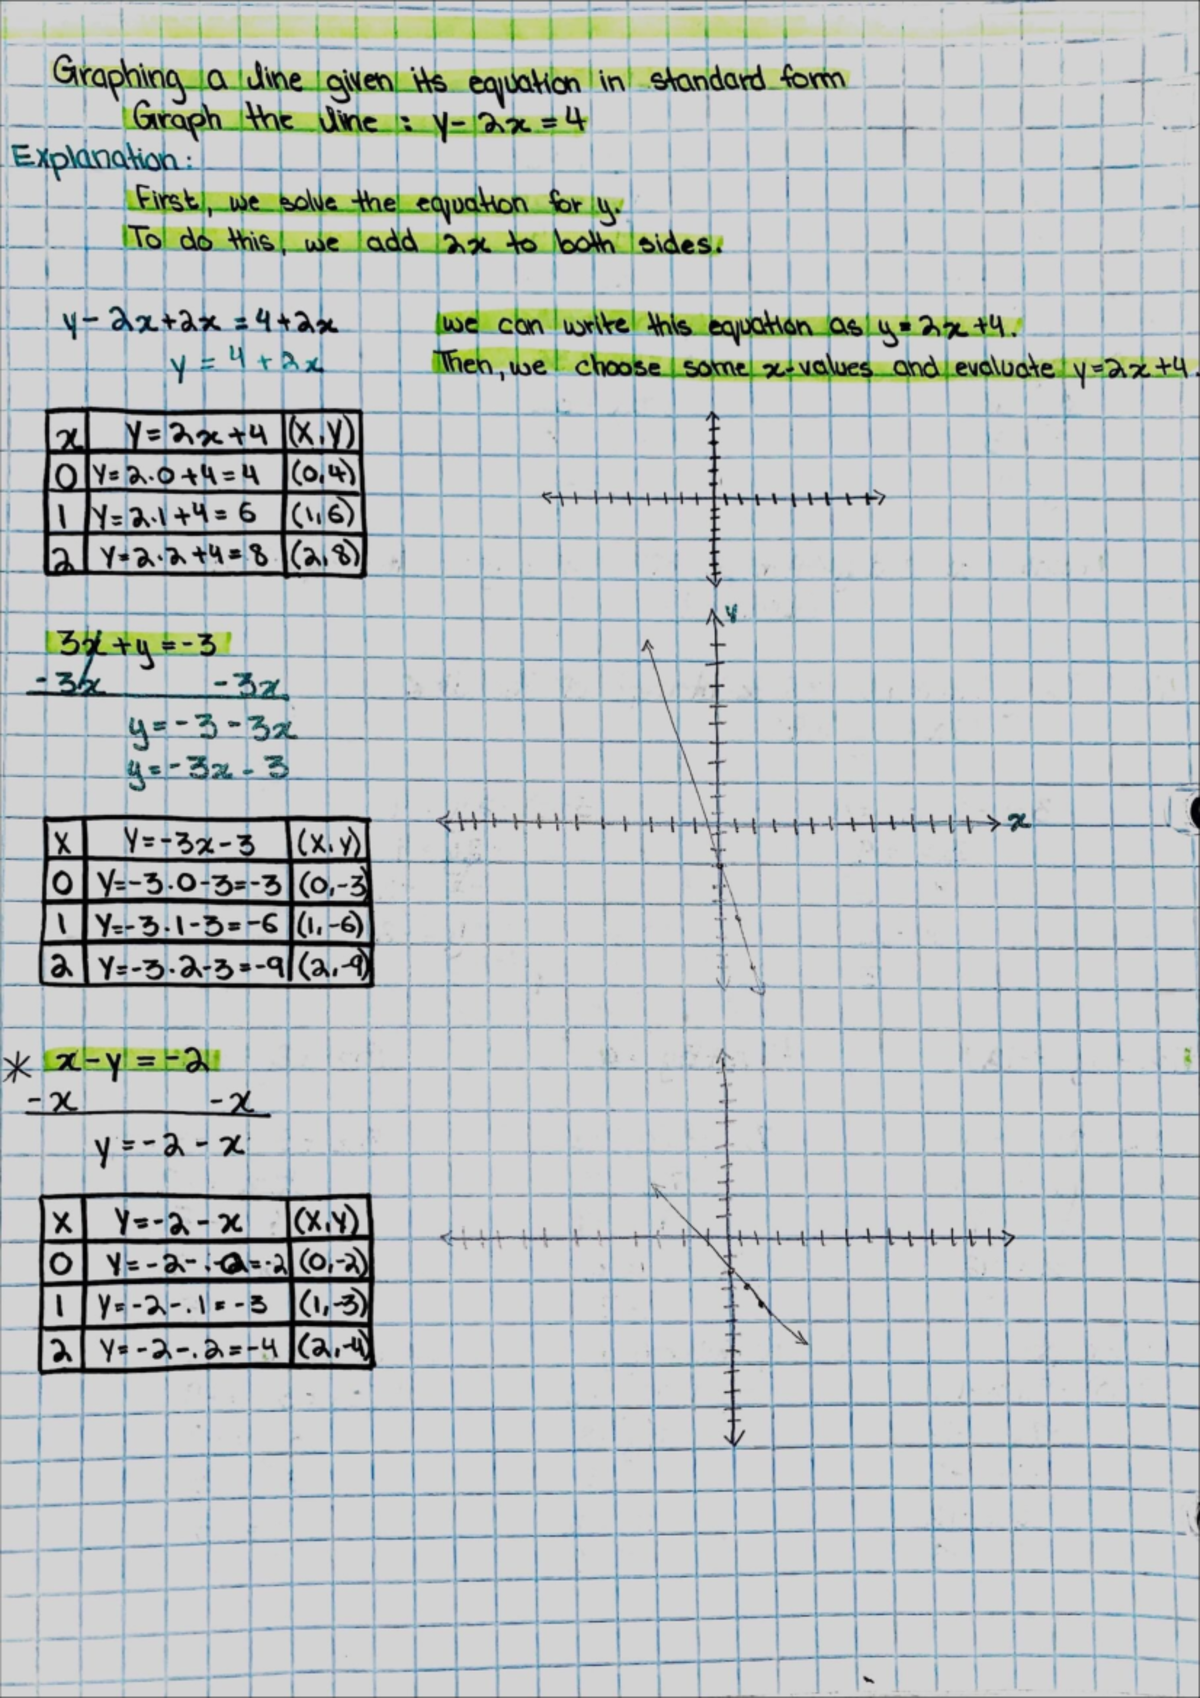 Graphing a line given its equation in standard form
Graph the line : y - 2x = 4
Explanation:
First, we solve the equation for y.
To do this, we add 2x to both sides.
y - 2x + 2x = 4 + 2x
y = 4 + 2x
we can write this equation as y = 2x + 4.
Then, we choose some x-values and evaluate y = 2x + 4.
x y = 2x + 4 (x,y)
0 y = 2·0 + 4 = 4 (0,4)
1 y = 2·1 + 4 = 6 (1,6)
2 y = 2·2 + 4 = 8 (2,8)
y
3x + y = -3
-3x -3x
y = -3 - 3x
y = -3x - 3
x
x y = -3x - 3 (x,y)
0 y = -3·0 - 3 = -3 (0,-3)
1 y = -3·1 - 3 = -6 (1,-6)
2 y = -3·2 - 3 = -9 (2,-9)
* x - y = -2
-x -x
y = -2 - x
x y = -2 - x (x,y)
0 y = -2 - ·0 = -2 (0,-2)
1 y = -2 - .1 = -3 (1,-3)
2 y = -2 - .2 = -4 (2,-4)